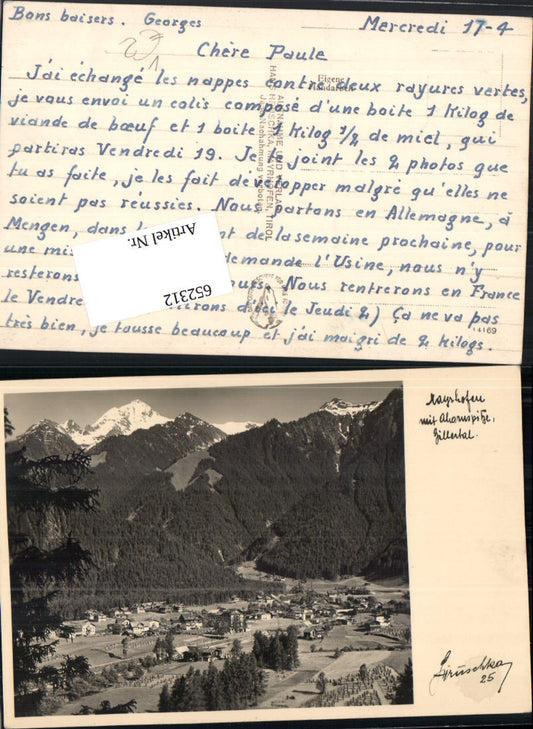 Bons baisers. Georges
Mercredi 17-4
Chère Paule
J'ai échangé les nappes contre deux rayures vertes,
je vous envoi un colis composé d'une boite 1 Kilog de
viande de bœuf et 1 boite 1 Kilog 1/2 de miel, qui
partiras Vendredi 19. Je te joint les 2 photos que
tu as faite, je les fait développer malgré qu'elles ne
soient pas réussies. Nous partons en Allemagne, à
Mengen, dans le de la semaine prochaine, pour
une mis demande l'Usine, nous n'y
resterons ours. Nous rentrerons en France
le Vendre irons d'ici le Jeudi 2) Ça ne va pas
très bien, je tousse beaucoup et j'ai maigri de 2 kilogs.
Eigene
Handarbeit
AUFNAHME UND VERLAG
HANS HRUSCHKA, MAYRHOFEN, TIROL
Jede Nachahmung verboten
14169
Artikel Nr.
652312
Mayrhofen
mit Ahornspitze,
Zillertal.
Hruschka
25